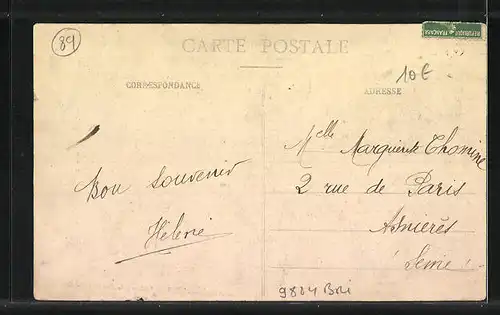 89
CARTE POSTALE
REPUBLIQUE FRANCAISE
10€
CORRESPONDANCE
ADRESSE
Melle Marguerite Thomine
Bon souvenir
2 rue de Paris
Hélène
Asnières
(Seine)
9824 BRI